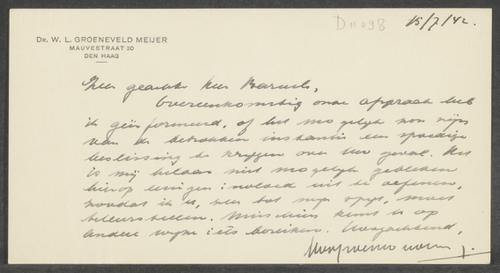 D 11098
15/7/42.
DR. W. L. GROENEVELD MEIJER
MAUVESTRAAT 30
DEN HAAG
Zeer geachte Heer Baruch,
Overeenkomstig onze afspraak heb
ik geïnformeerd, of het mogelijk zou zijn
van de betrokken instantie een spoedige
beslissing te krijgen over Uw geval. Het
is mij helaas niet mogelijk gebleken
hierop eenigen invloed uit te oefenen,
zoodat ik U, zeer tot mijn spijt, moet
teleurstellen. Misschien kunt U op
andere wijze iets bereiken. Hoogachtend,